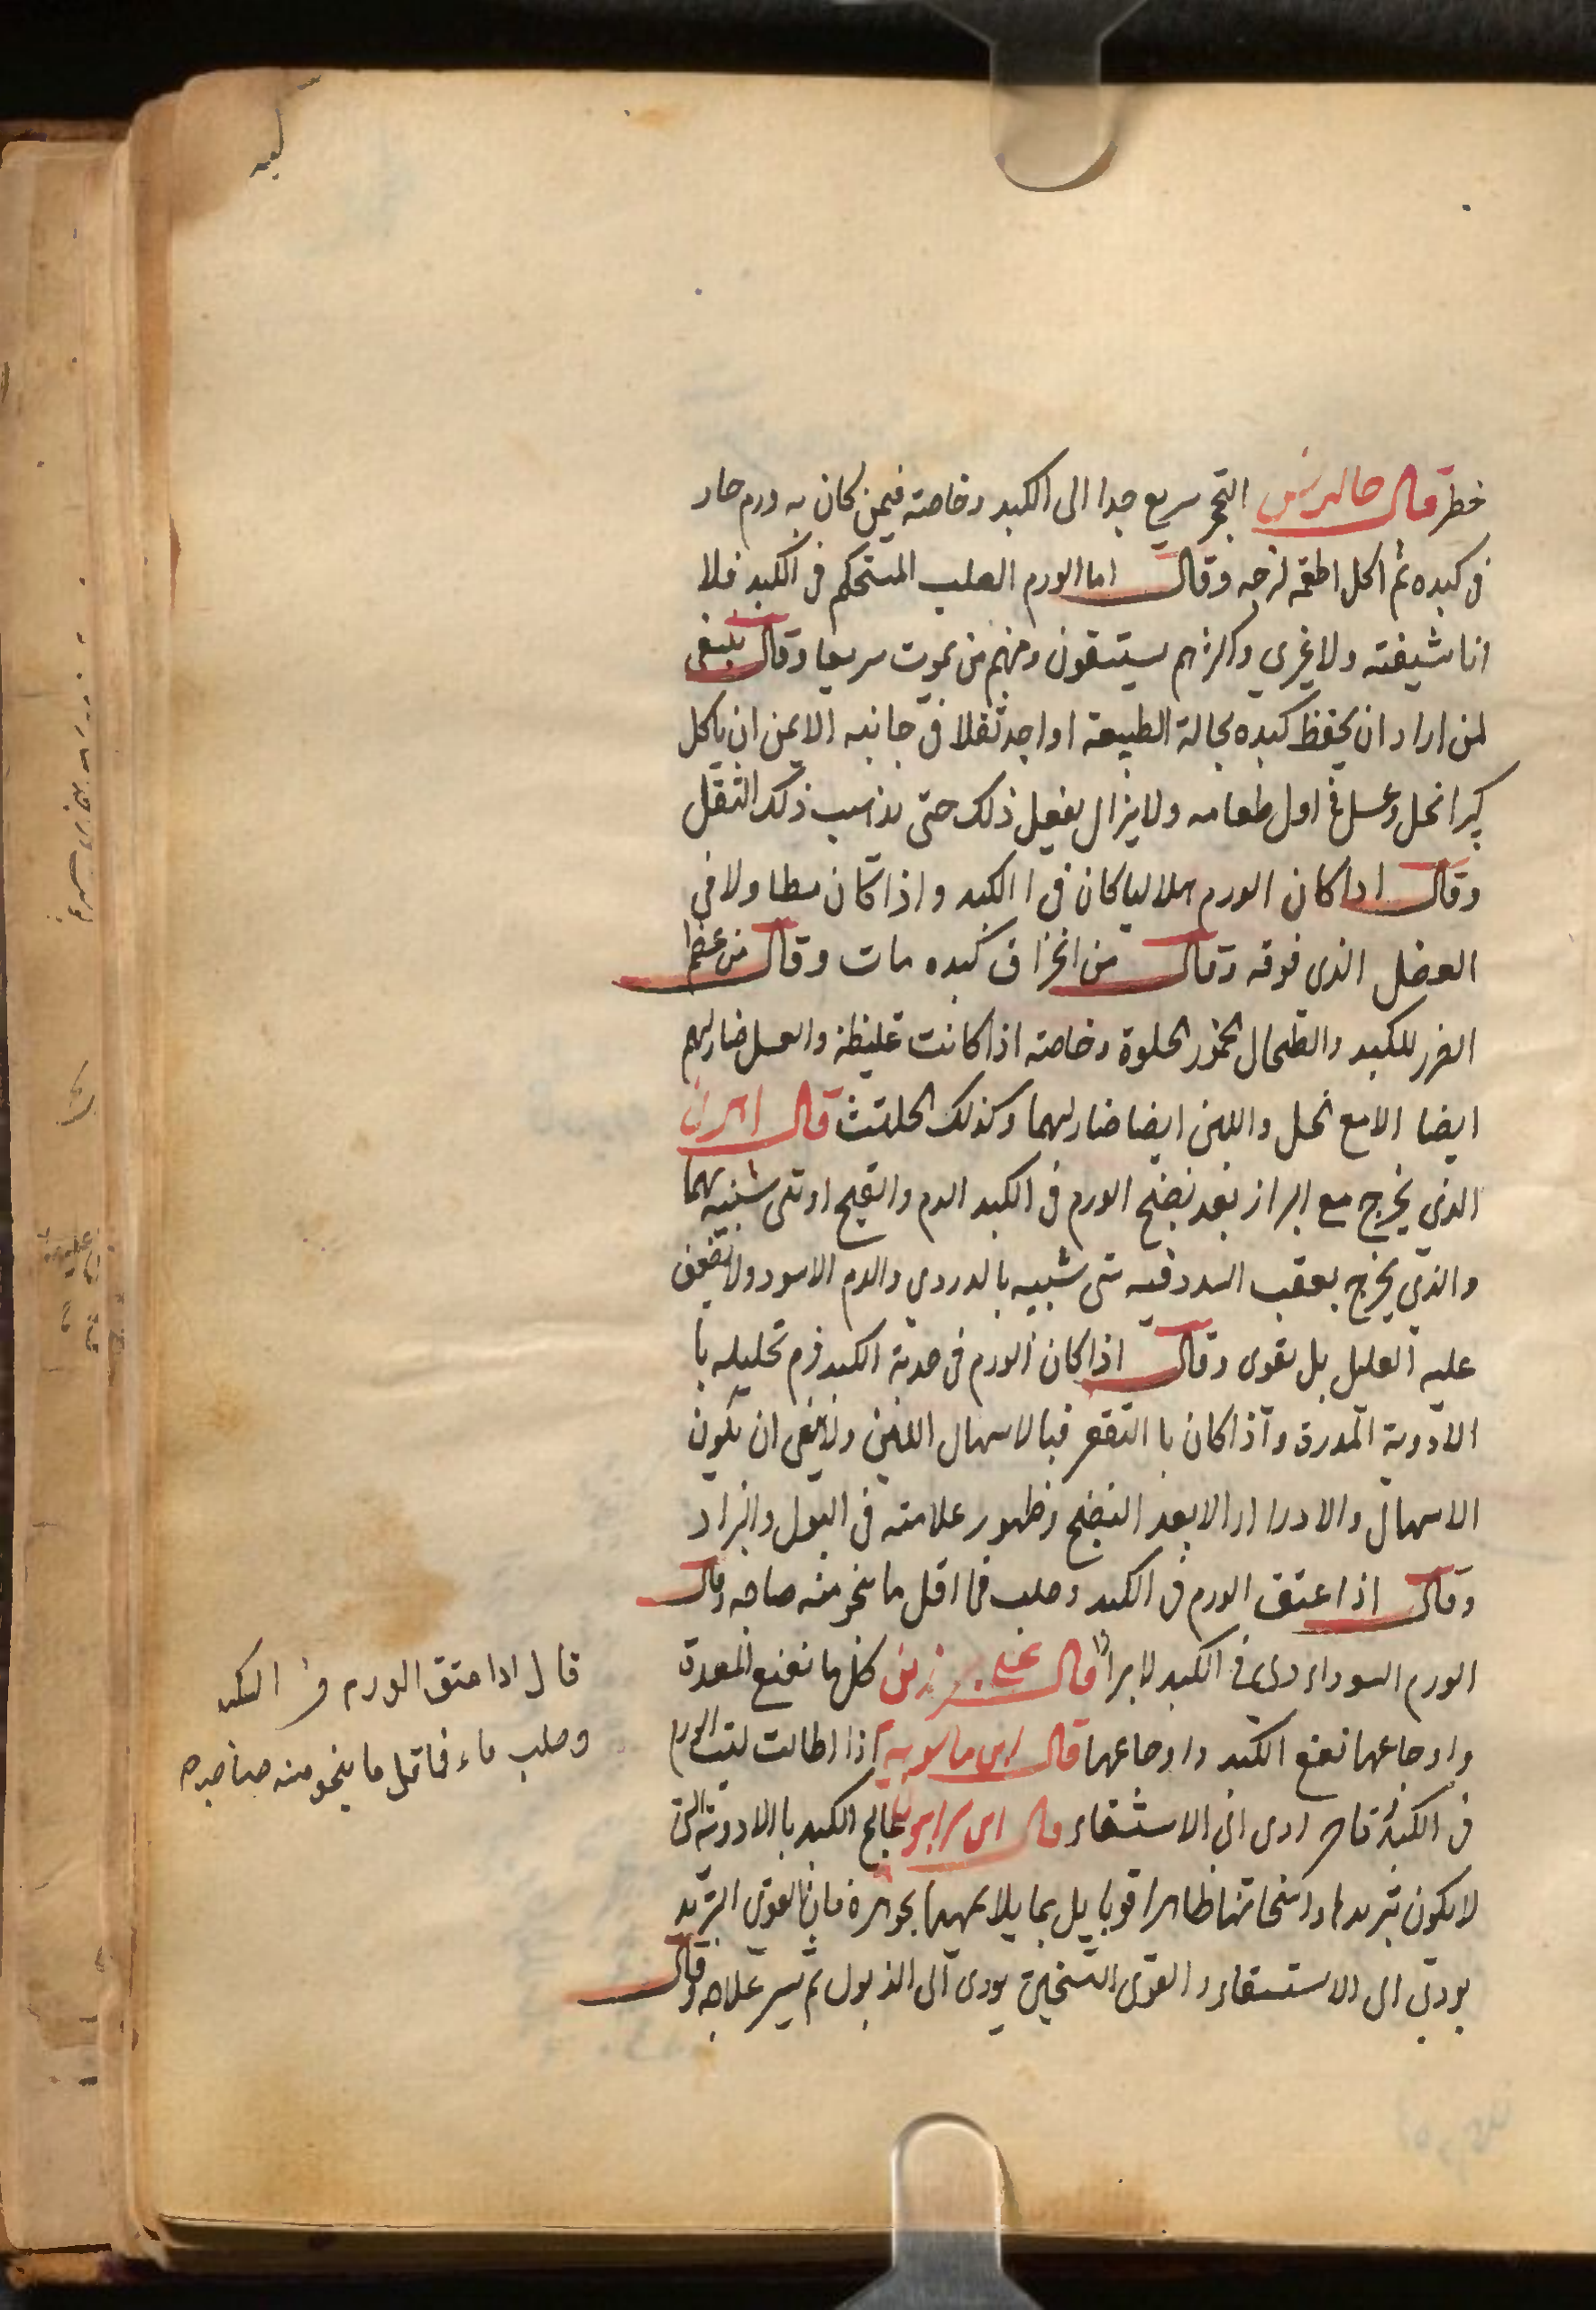 خطر قال جالينوس التحجر سريع جدا الى الكبد وخاصته فيمن كان به ورم حار
فى كبده ثم اكل اطعمه لزجه وقال اما الورم الصلب المستحكم فى الكبد فلا
انا شيفته ولا غيري واكثرهم يستسقون ومنهم من يموت سريعا وقال ينبغى
لمن اراد ان يحفظ كبده بحالة الطبيعة او اجد ثقلا فى جانبه الايمن ان ياكل
كبرا بخل وعسل فى اول طعامه ولا يزال يفعل ذلك حتى يذهب ذلك الثقل
وقال اذا كان الورم هلاليا كان فى ا الكبد واذا كان مطاولا فى
العضل الذى فوقه وقال من انخزاق كبده مات وقال من عظم
الضرر للكبد والطحال الخمور الحلوة وخاصته اذا كانت غليظة والعسل ضار لهم
ايضا الا مع الخل واللبن ايضا ضار لهما وكذلك الحلتيث قال اهرن
الذى يخرج مع البراز بعد نضج الورم فى الكبد الدم والقيح او شى شبيه بهما
والذى يخرج بعقب السدد فيه شى شبيه بالدردي والدم الاسود ولا يضعف
عليه العليل بل يقوى وقال اذا كان الورم فى حدبة الكبد فرم تحليله با
الادوية المدرة واذا كان با التقعر فبالاسهال اللين ولا ينبغى ان يكون
الاسهال والادرار الا بعد النضج وظهور علامته فى البول والبراز
وقال اذا عتق الورم فى الكبد وصلب فما اقل ما ينجو منه صاحبه وقال
الورم السوداوى فى الكبد لا يبرا قال على بن زين كلما نفع المعدة
واوجاعها نفع الكبد واوجاعها قال ابن ماسويه اذا اطالت لبث الورم
فى الكبد ادى الى الاستسقاء قال ابن سرابيون يعالج الكبد با الادوية التى
لا يكون تبريدها واسخانها ظاهرا قويا بل بما يلايمهما بجوهره فان القوى التبريد
يودى الى الاستسقاء والقوى التسخين يودى الى الذبول ثم يعسر علاجه وقال
قال اذا عتق الورم فى الكبد
وصلب ماء فما اقل ما ينجو منه صاحبه